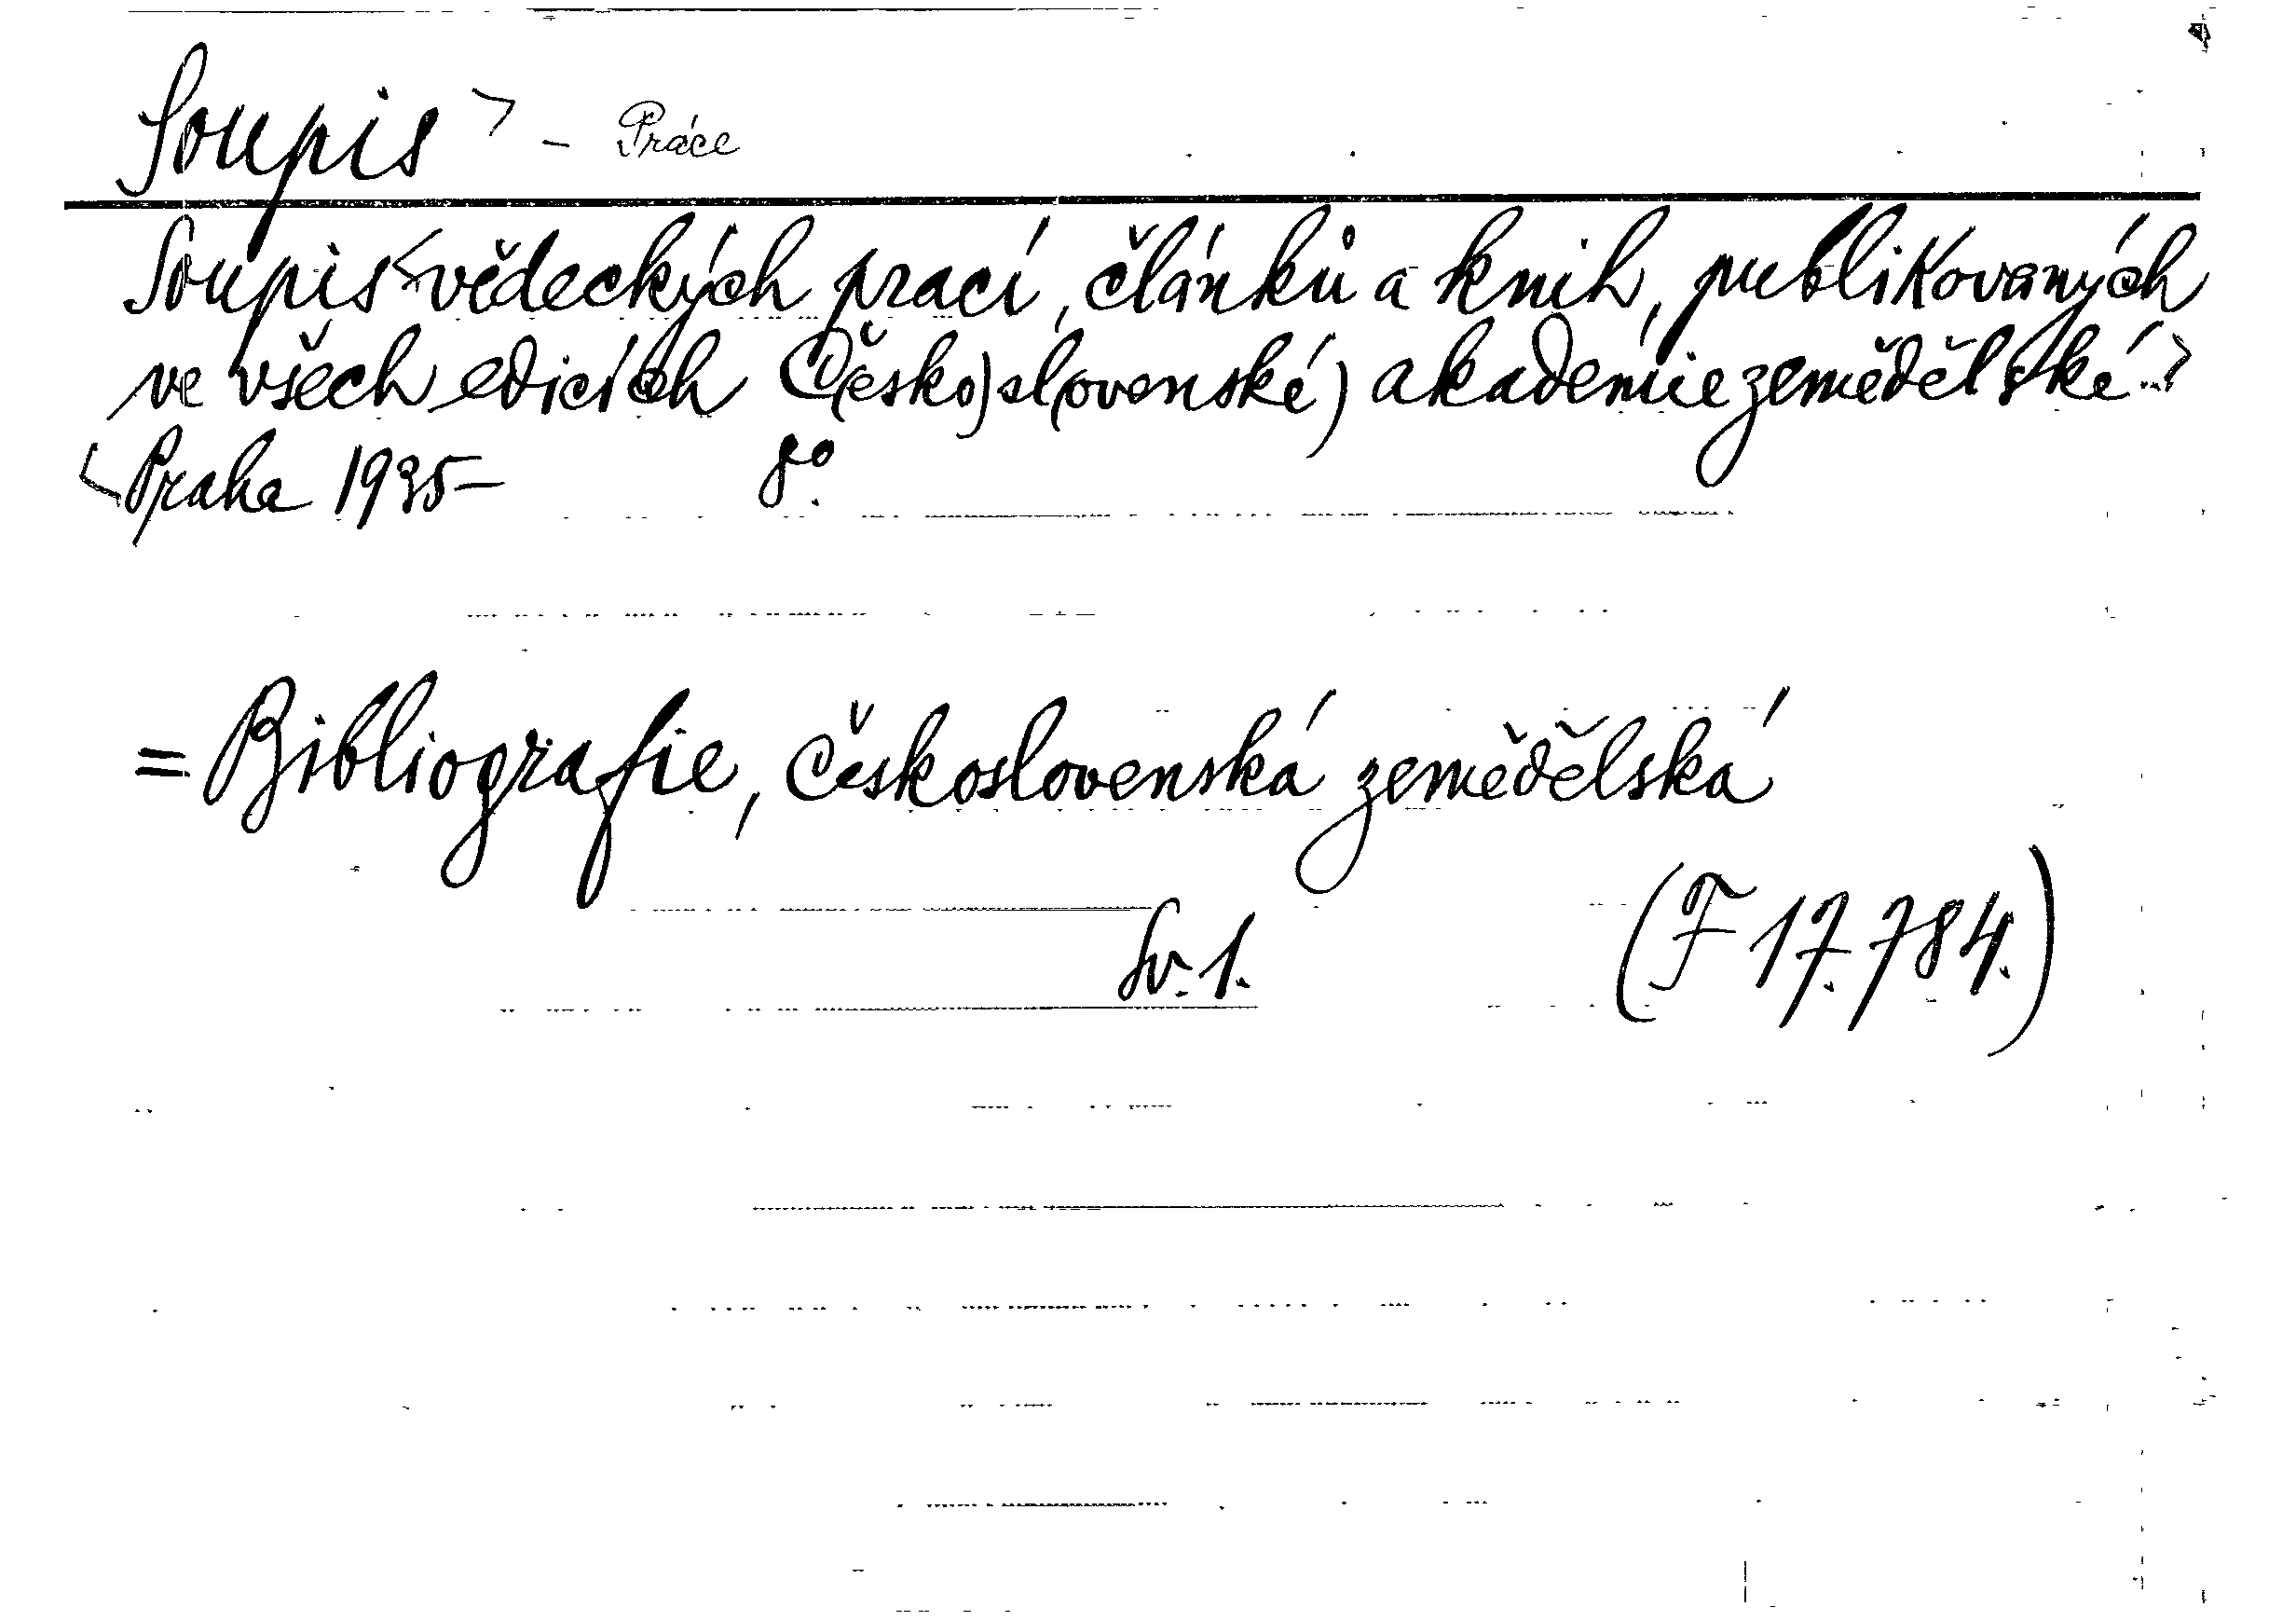 Soupis > - Práce
Soupis < vědeckých prací, článků a knih, publikovaných
ve všech edicích Č(esko)sl(ovenské) akademie zemědělské...>
<Praha 1935- 8°.
= Bibliografie, Československá zemědělská
Sv. 1. (F 17.784.)